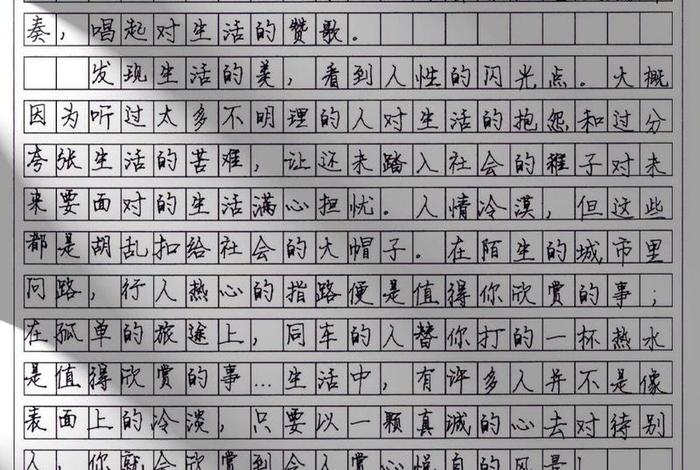 奏，唱起对生活的赞歌。
发现生活的美，看到人性的闪光点。大概
因为听过太多不明理的人对生活的抱怨和过分
夸张生活的苦难，让还未踏入社会的稚子对未
来要面对的生活满心担忧。人情冷漠，但这些
都是胡乱扣给社会的大帽子。在陌生的城市里
问路，行人热心的指路便是值得你欣赏的事；
在孤单的旅途上，同车的人替你打的一杯热水
是值得欣赏的事…生活中，有许多人并不是像
表面上的冷淡，只要以一颗真诚的心去对待别
人，你就会欣赏到令人赏心悦目的风景！